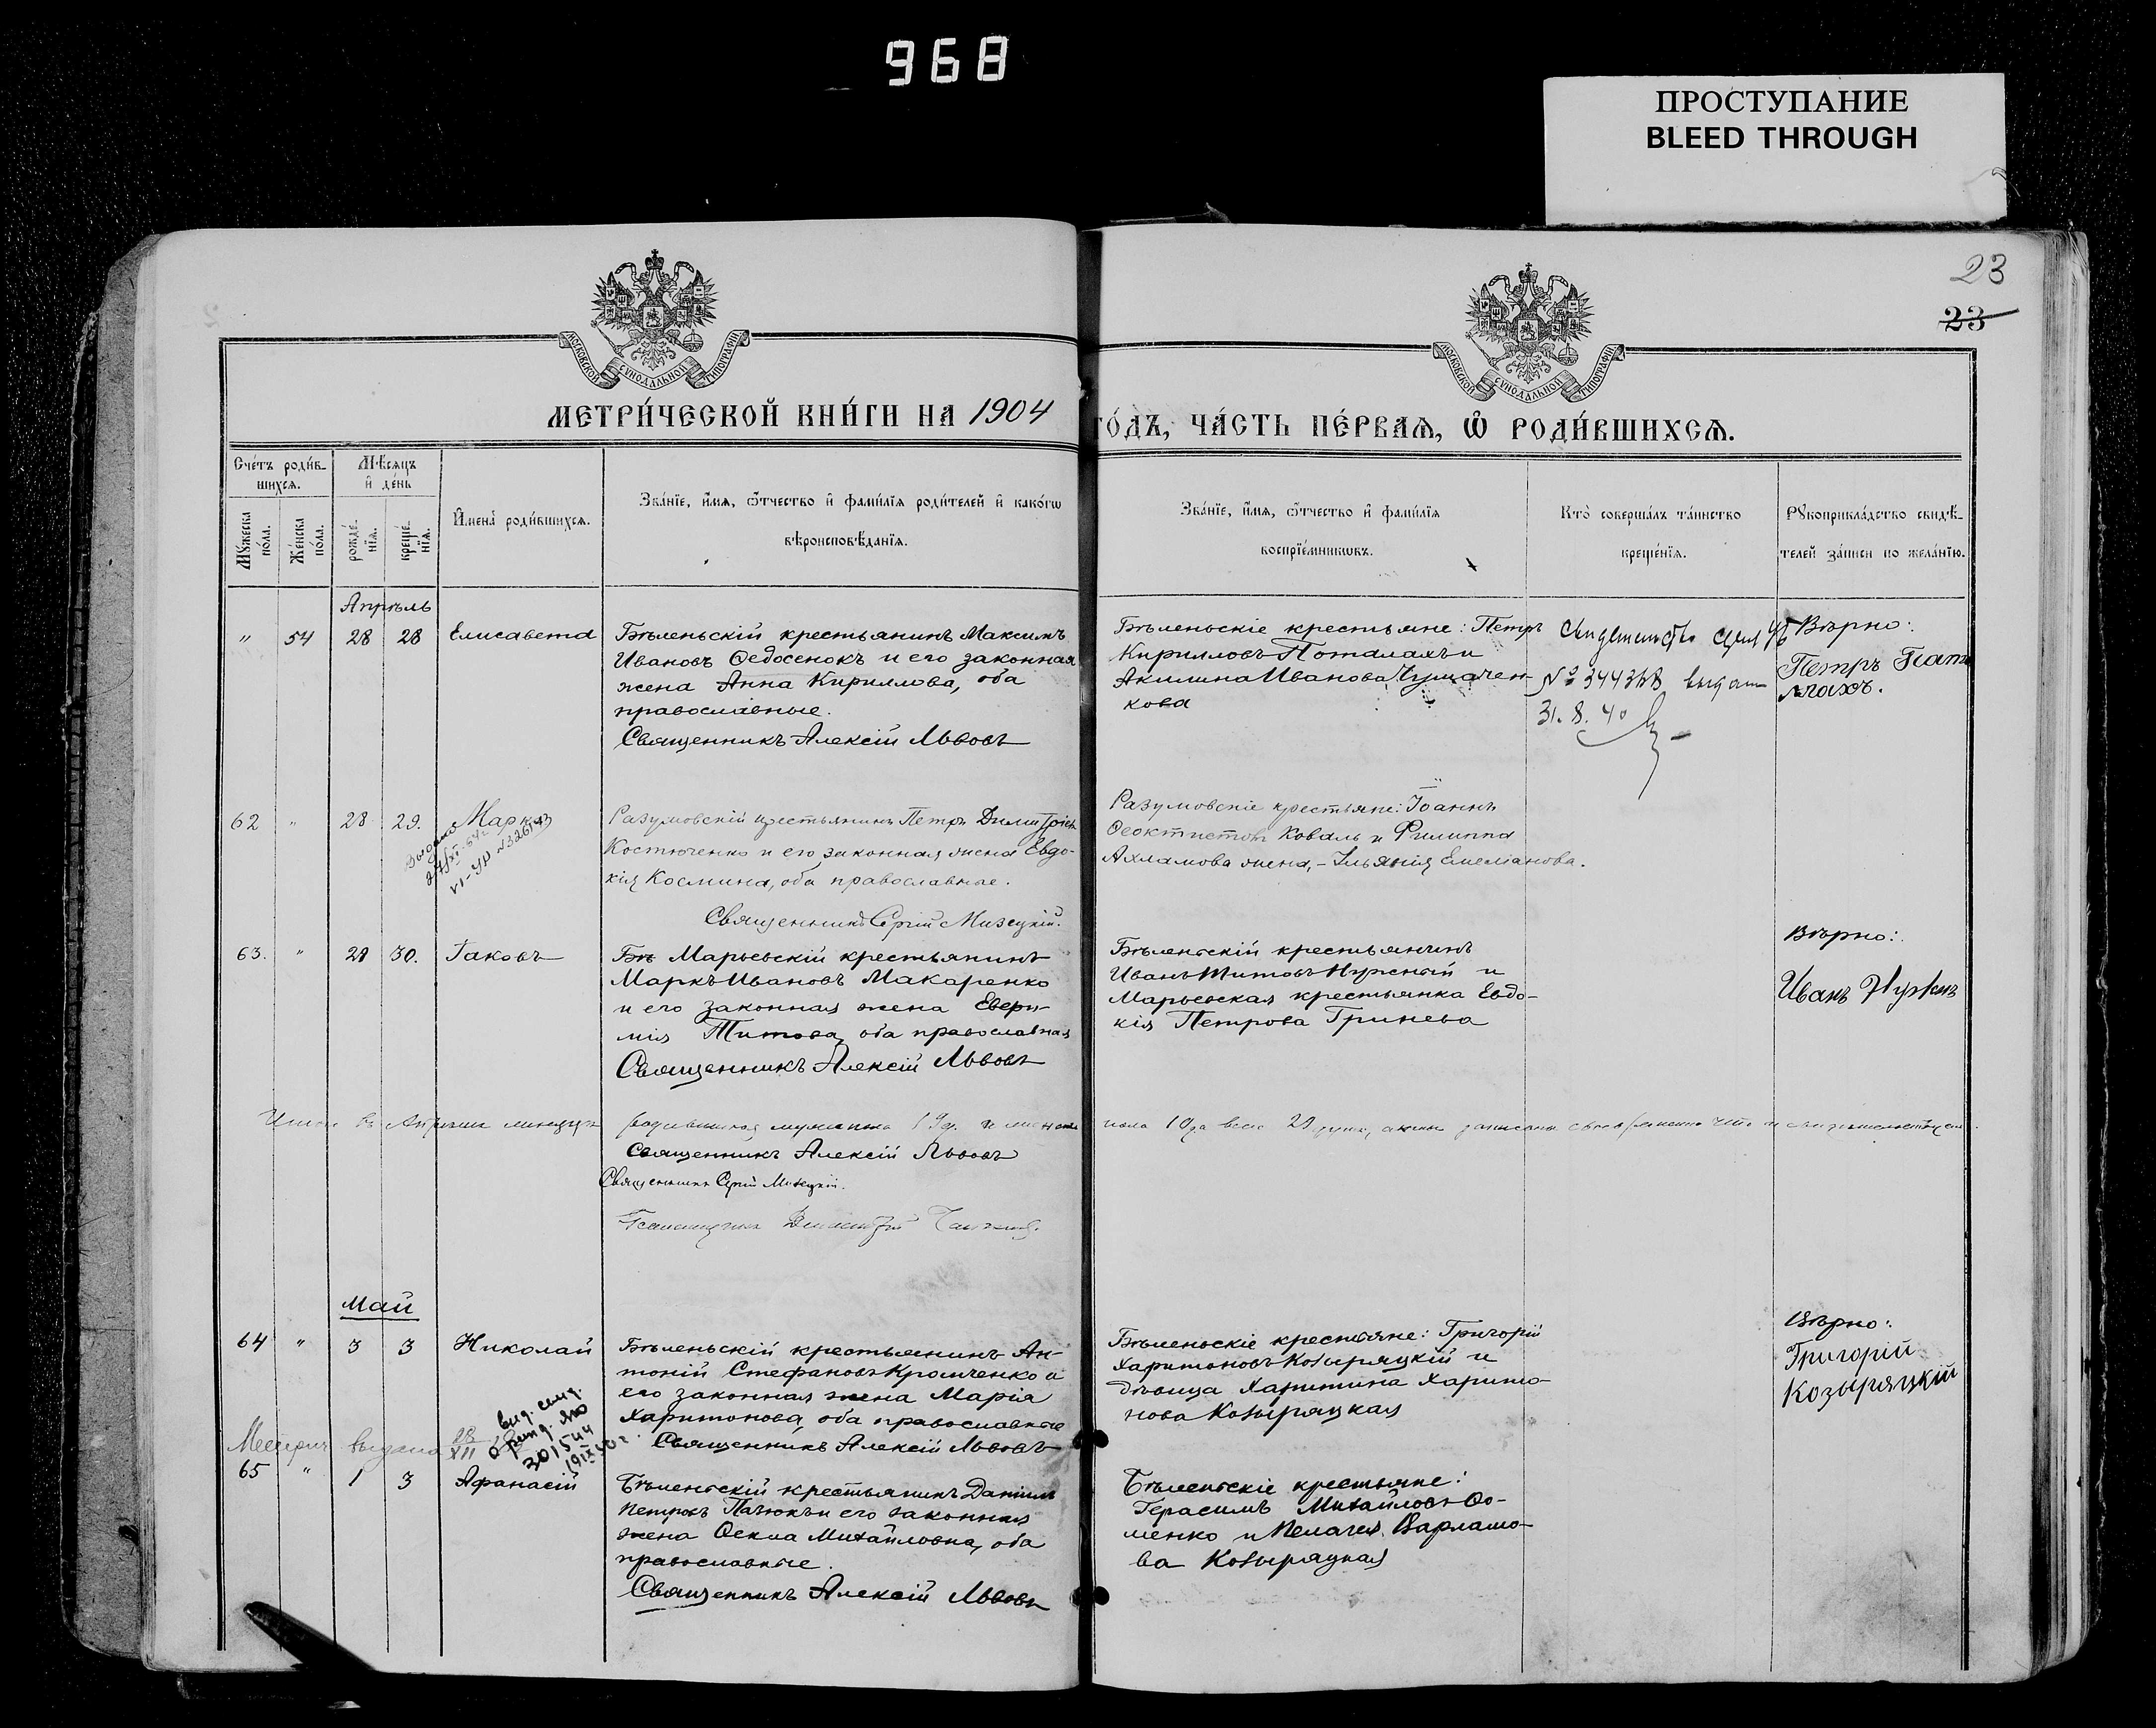 968
ПРОСТУПАНИЕ
BLEED THROUGH
23
23
МОСКОВСКОЙ СѴНОДАЛЬНОЙ ТИПОГРАФІИ
МОСКОВСКОЙ СѴНОДАЛЬНОЙ ТИПОГРАФІИ
МЕТРИ́ЧЕСКОЙ КНИ́ГИ НА 1904
ГО́ДЪ, ЧА́СТЬ ПЕ́РВАѦ, Ѡ РОДИ́ВШИХСѦ.
Сче́тъ роди́в-
шихсѧ.
Мѣ́сѧцъ
и де́нь
Мꙋ́жеска по́ла.
Же́нска по́ла.
рожде́-
нїѧ.
креще́-
нїѧ.
Имена̀ роди́вшихсѧ.
Зва́нїе, и́мѧ, ѻ́тчество и фамилїѧ роди́телей и како́гѡ
вѣроисповѣ́данїѧ.
Зва́нїе, и́мѧ, ѻ́тчество и фами́лїѧ
воспрїе́мникѡвъ.
Кто̀ соверша́лъ та́инство
креще́нїѧ.
Рꙋкоприкла́дство свидѣ́-
телей за́писи по жела́нїю.
Апрѣль
" 54 28 28 Елисавета
Бѣленьскій крестьянинъ Максимъ
Ивановъ Ѳедосенокъ и его законная
жена Анна Кириллова, оба
православные.
Священникъ Алексій Львовъ
Бѣленьскіе крестьяне: Петръ
Кирилловъ Поталахъ и
Акилина Иванова Чумачен-
кова
№ 344368
31.8.40
Вѣрно:
Петръ
62 " 28 29. Марко
Разумовскій крестьянинъ Петръ Димитріевъ
Костюченко и его законная жена Евдо-
кія Космина, оба православные.
Священникъ Сергій Мизецкій.
Разумовскіе крестьяне: Іоаннъ
Ѳеоктистовъ Коваль и Филиппа
Ахламова жена,
63. " 29 30. Іаковъ
Бѣ Марьевскій крестьянинъ
Маркъ Ивановъ Макаренко
и его законная жена
мія Титова, оба православная
Священникъ Алексій Львовъ
Бѣленьскій крестьянинъ
Иванъ Титовъ Нужный и
Марьевская крестьянка Евдо-
кія Петрова Гринева
Вѣрно:
Иванъ Нужнъ
Итого въ Апрѣлѣ мѣсяцѣ родившихся мужеска 19 и женска
пола 10 всего 29
Священникъ Алексій Львовъ
Священникъ Сергій Мизецкій.
Псаломщикъ Димитрій
Май
64 " 3 3 Николай
Бѣленьскій крестьянинъ Ан-
тоній Стефановъ Кромченко и
его законная жена Марія
Харитонова, оба православные
Священникъ Алексій Львовъ
Бѣленьскіе крестьяне: Григорій
Харитоновъ Козыряцкій и
дѣвица Харитина Харито-
нова Козыряцкая
Вѣрно:
Григорій
Козыряцкій
выдана 28
XII
301544
65 " 1 3 Афанасій
Бѣленьскій крестьянинъ Даніилъ
Петровъ Пацюкъ и его законная
жена Ѳекла Михайловна, оба
православные.
Священникъ Алексій Львовъ
Бѣленьскіе крестьяне:
Герасимъ Михайловъ Ѳо-
менко и Пелагея Варламо-
ва Козыряцкая